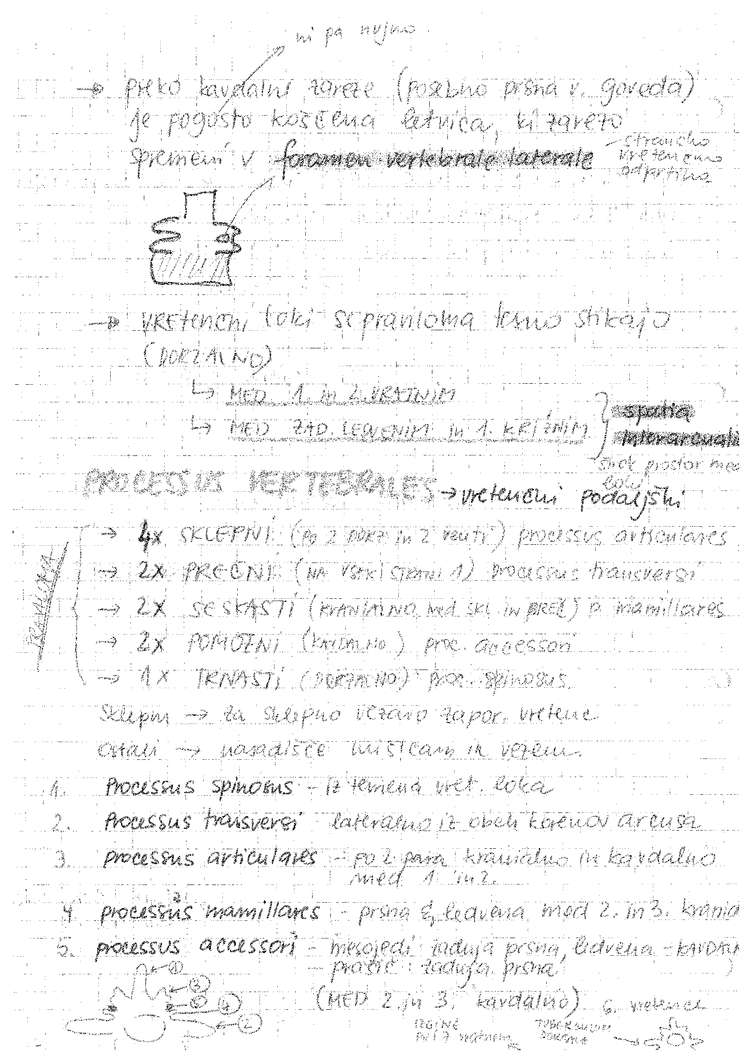 ni pa nujno.
→ preko kavdalni zareze (posebno prsna v. goveda)
je pogosto koščena letvica, ki zarezo
spremeni v foramen vertebrale laterale
- stransko
vretenčno
odprtina
→ VRETENČNI loki se praviloma tesno stikajo
(DORZALNO)
↳ MED 1. in 2. VRATNIM
↳ MED ZAD. LEDVENIM in 1. KRIŽNIM
spatia
interarcualia
širok prostor med
loki
PROCESSUS VERTEBRALES → vretenčni podaljški
→ 4x SKLEPNI (PO 2 DORZ. in 2 ventr) processus articulares
→ 2x PREČNI (NA VSAKI STRANI 1) processus transversi
→ 2x SESKASTI (KRANIALNO, med skl. in preč) p. mamillares
→ 2x POMOŽNI (KAVDALNO) proc. accessori
→ 1x TRNASTI (DORZALNO) proc. spinosus.
Sklepni → za sklepno vezavo zapor. vretenc
Ostali → nasadišče mišicam in vezem.
1. Processus spinosus - iz temena vret. loka
2. Processus transversi lateralno iz obeh korenov arcusa
3. processus articulares - po 2 para kranialno in kavdalno
med 1. in 2.
4. processus mamillares - prsna & ledvena med 2. in 3. kranial
5. processus accessori - mesojedi: zadnja prsna, ledvena - KAVDAL
- prašič: zadnja prsna
(MED 2. in 3. kavdalno) 6. vretence
① ③ ④ ②